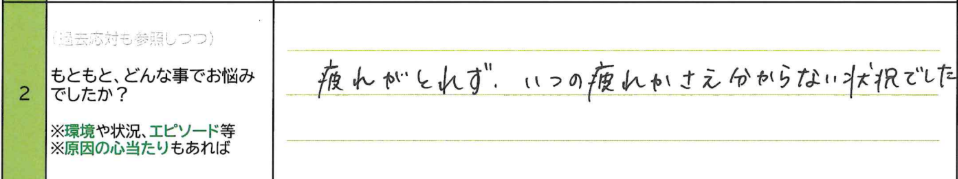 2
(過去応対も参照しつつ)
もともと、どんな事でお悩み
でしたか?
※環境や状況、エピソード等
※原因の心当たりもあれば
疲れがとれず、いつの疲れかさえ分からない状況でした